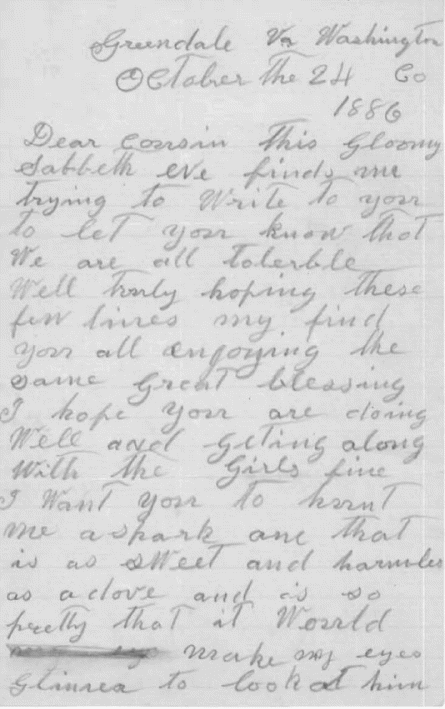 Greendale Va Washington
October the 24 Co
1886
Dear Cousin this Gloomy
Sabbeth eve finds me
trying to Write to your
to let your know that
We are all tolerble
Well truly hoping these
few lines my find
your all enjoying the
same Great blessing
I hope your are doing
Well and geting along
With the Girls fine
I Want your to hunt
me a spark one that
is as sweet and harmles
as a dove and is so
pretty that it Would
make my eyes
to look at him